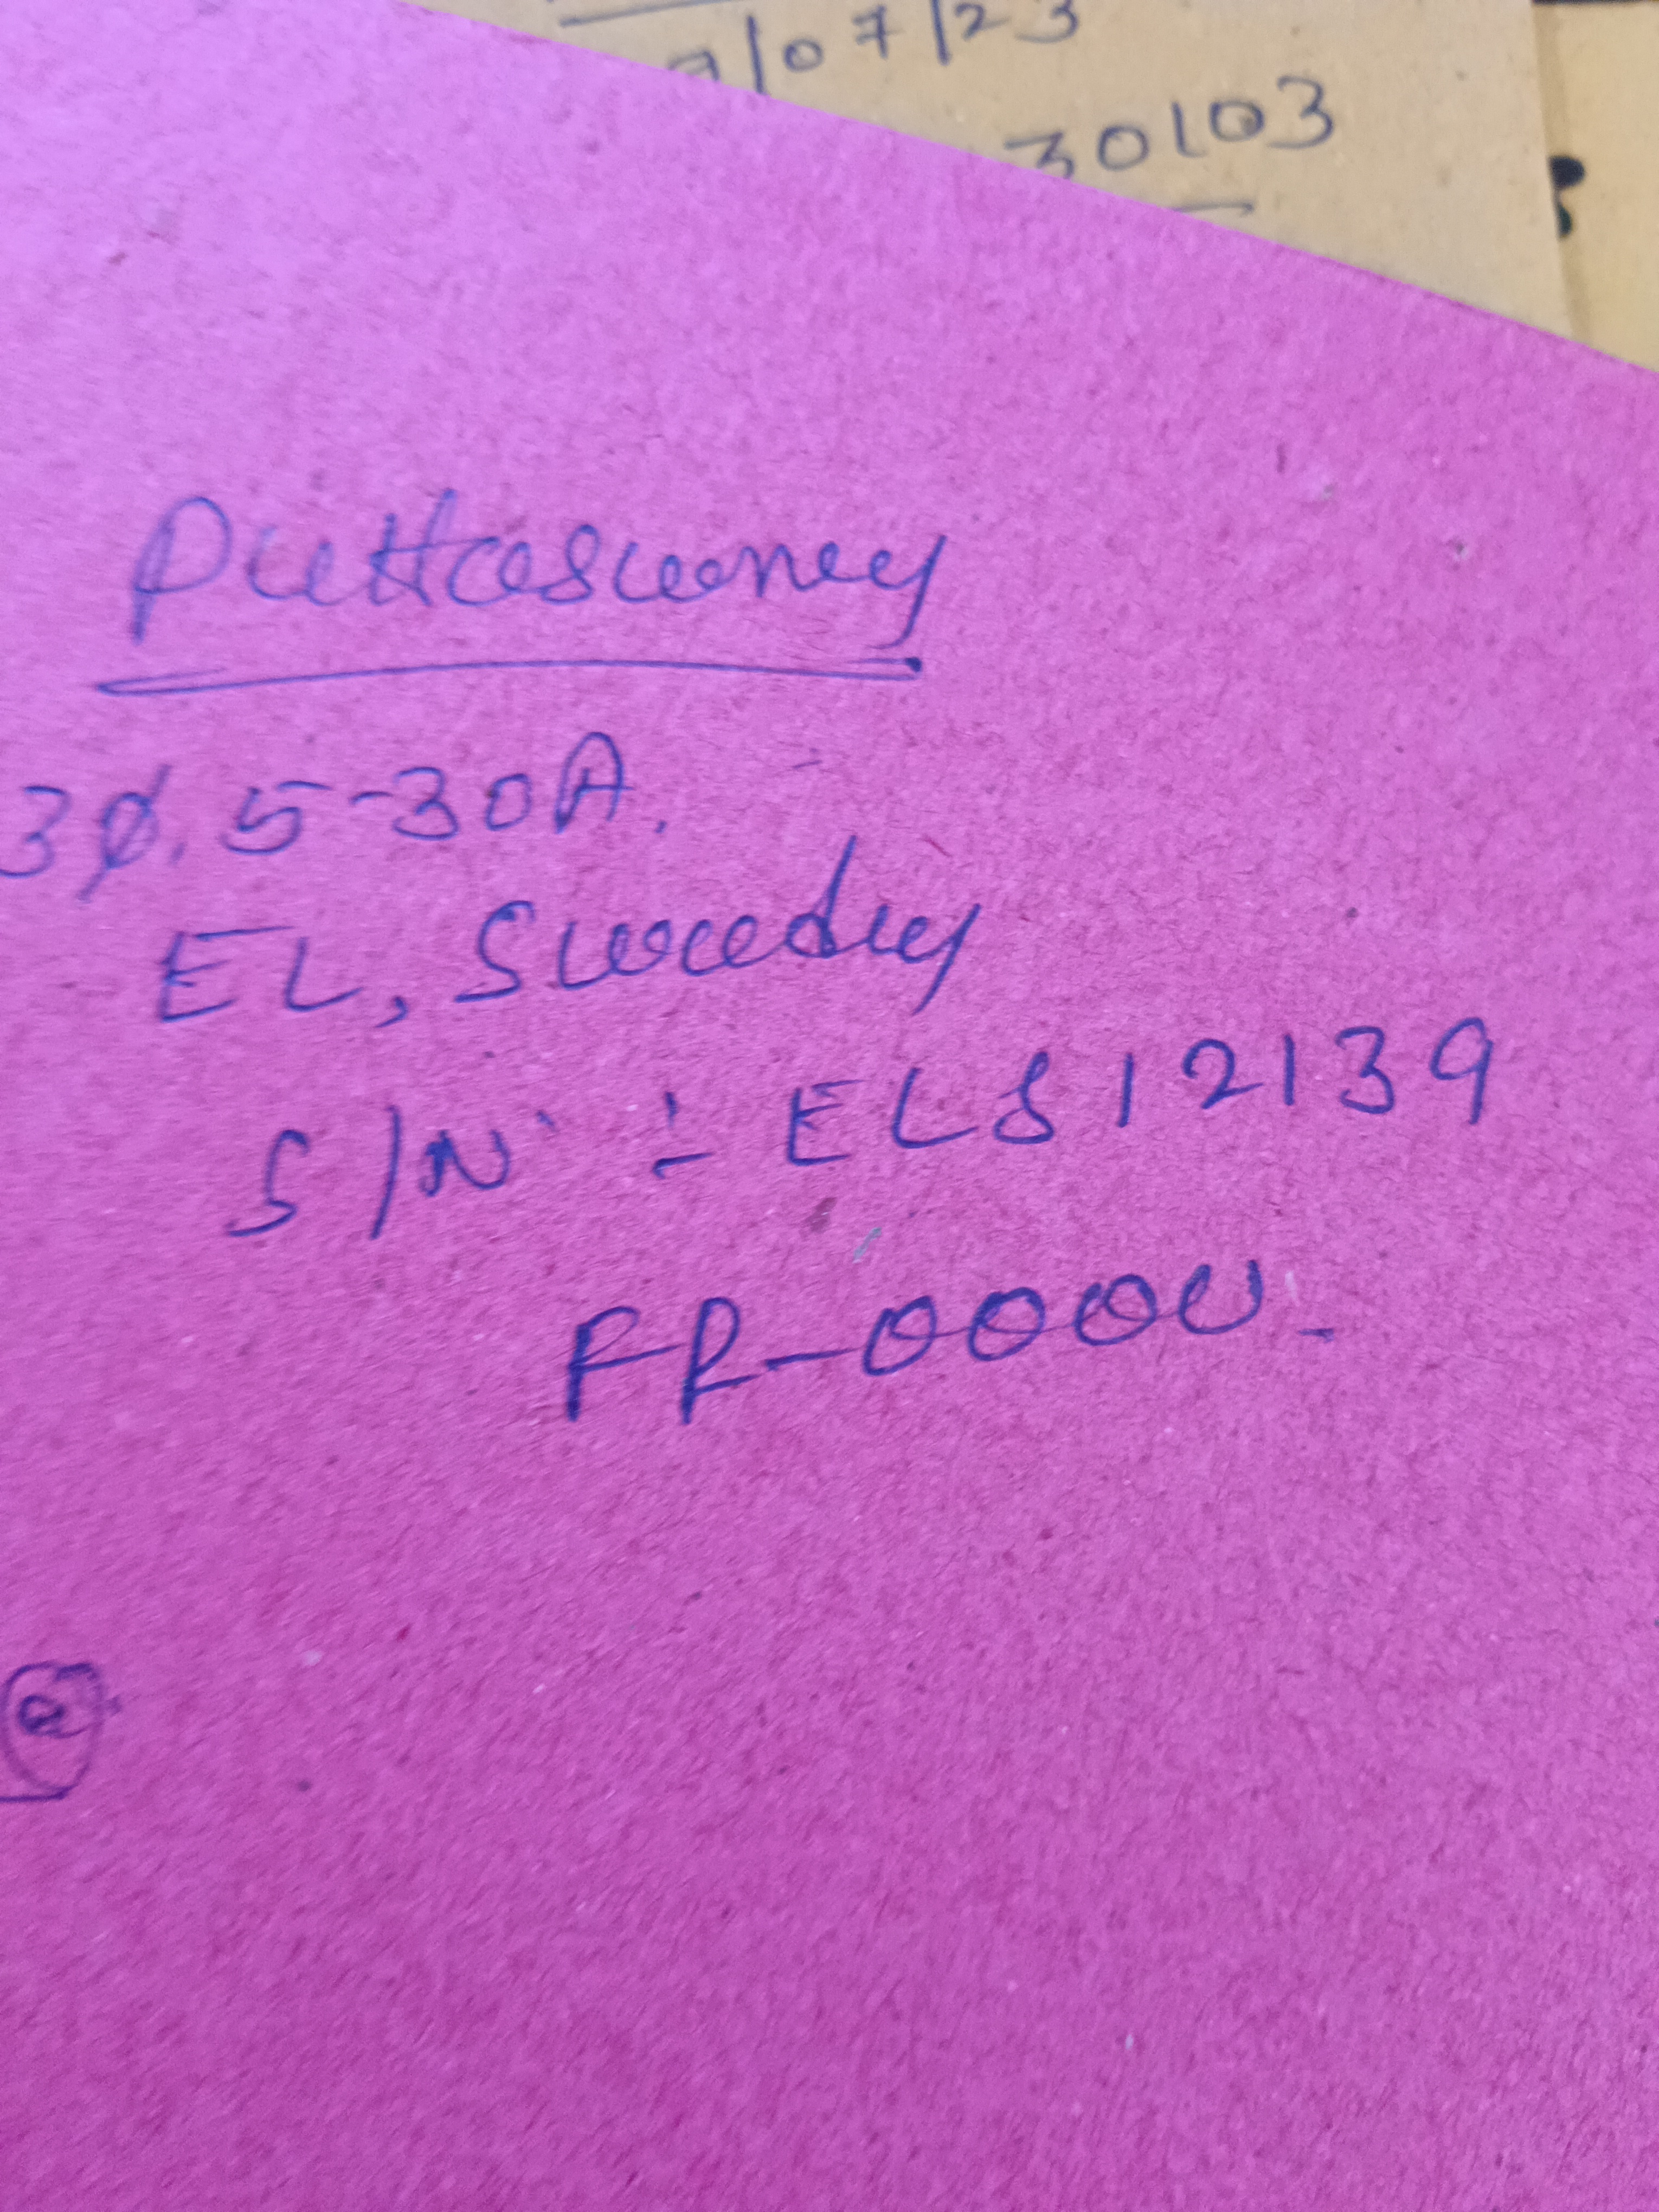 9/07/23
30103
Puttaswamy
3ø, 5-30A.
EL, Swedy
S/N :- ELS12139
FR-0000.